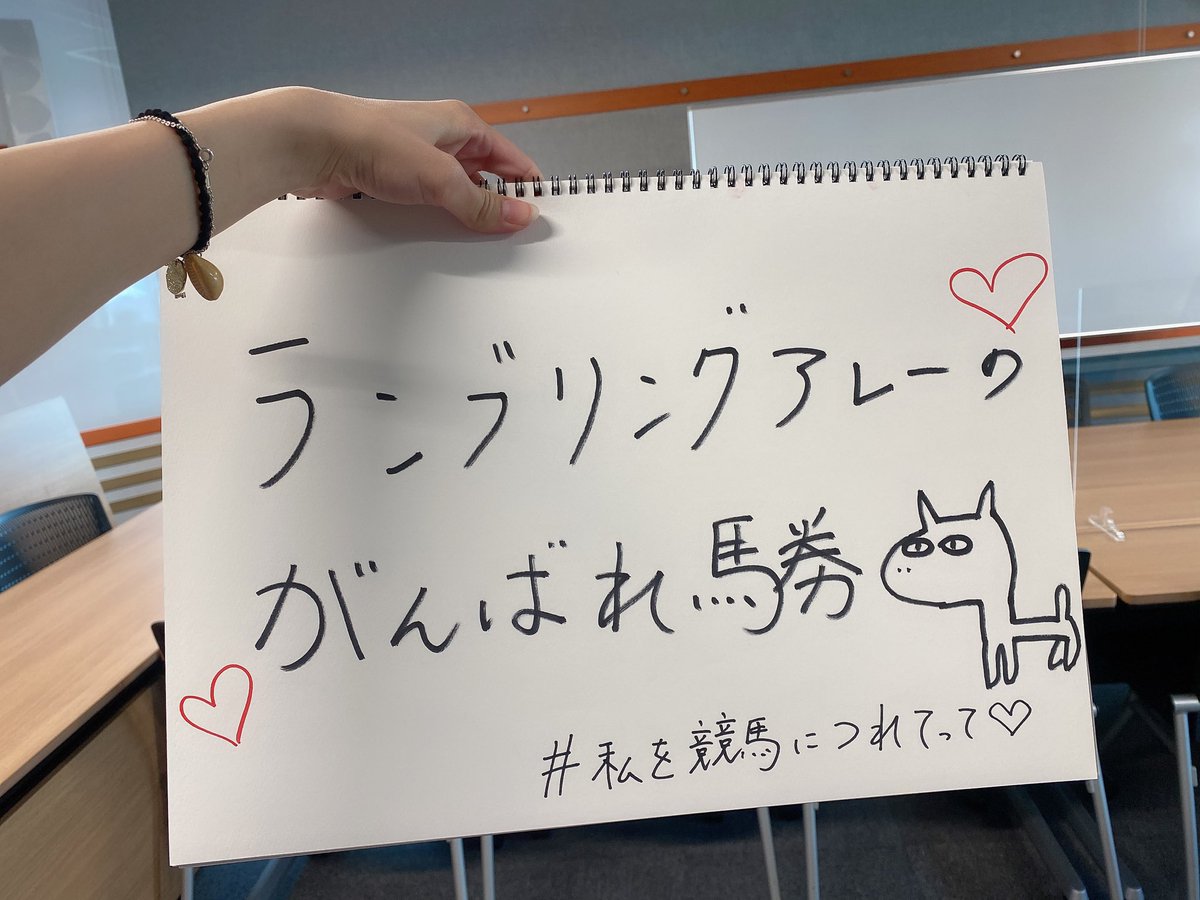 ランブリングアレーの
がんばれ馬券
#私を競馬につれてって♡